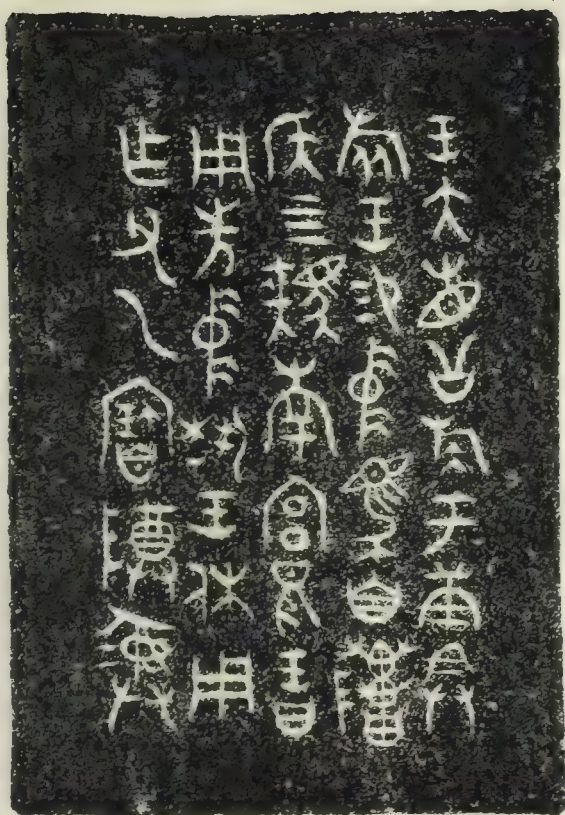 王大省公族于庚
旅王易中馬自
侯四騩南宮兄王曰
用先中埶王休用
乍父乙寶隩彝